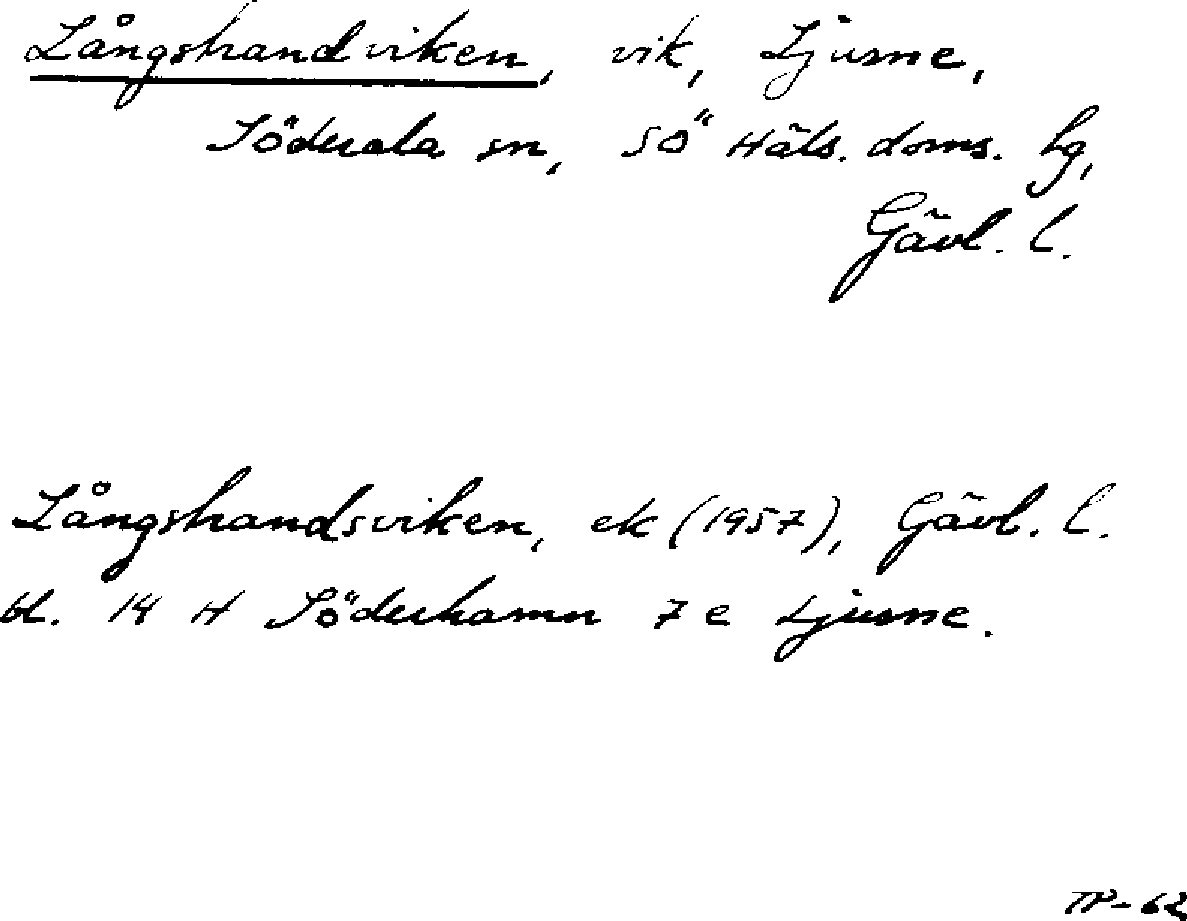 Långshandviken, vik, Ljusne,
Söderala sn, SÖ Häls. doms. hg,
Gävl. l.
Långshandsviken, ek (1957), Gävl. l.
bl. 14 H Söderhamn 7 e Ljusne.
TP-62